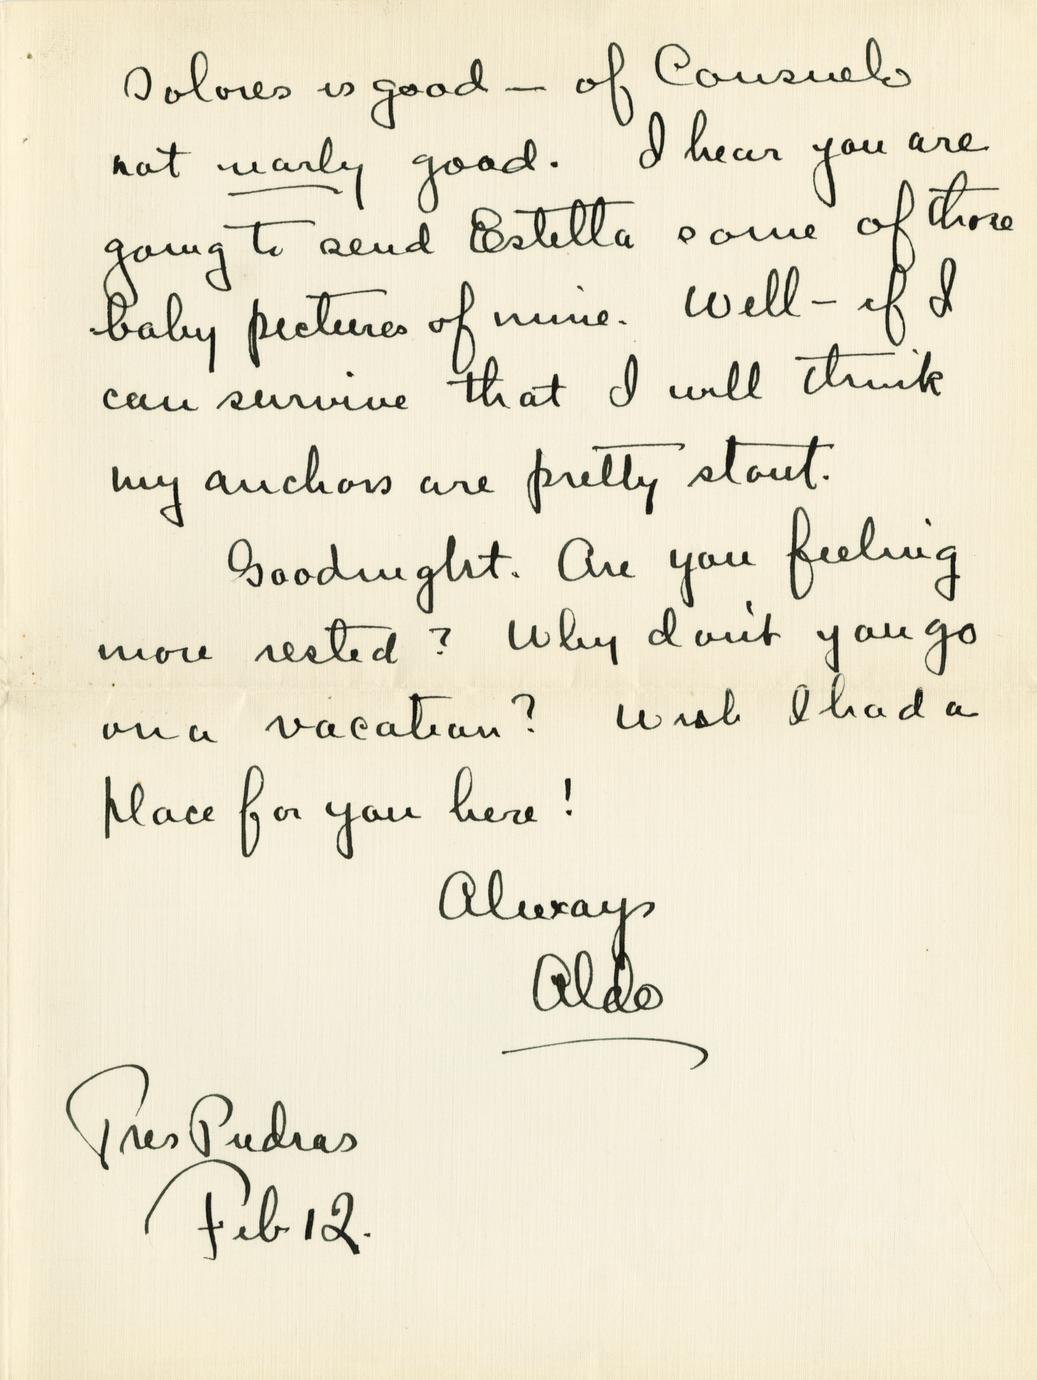 Dolores is good — of Consuelo
not nearly good. I hear you are
going to send Estella some of those
baby pictures of mine. Well — if I
can survive that I will think
my anchors are pretty stout.
Goodnight. Are you feeling
more rested? Why don't you go
on a vacation? Wish I had a
place for you here!
Always
Aldo
Tres Piedras
Feb 12.